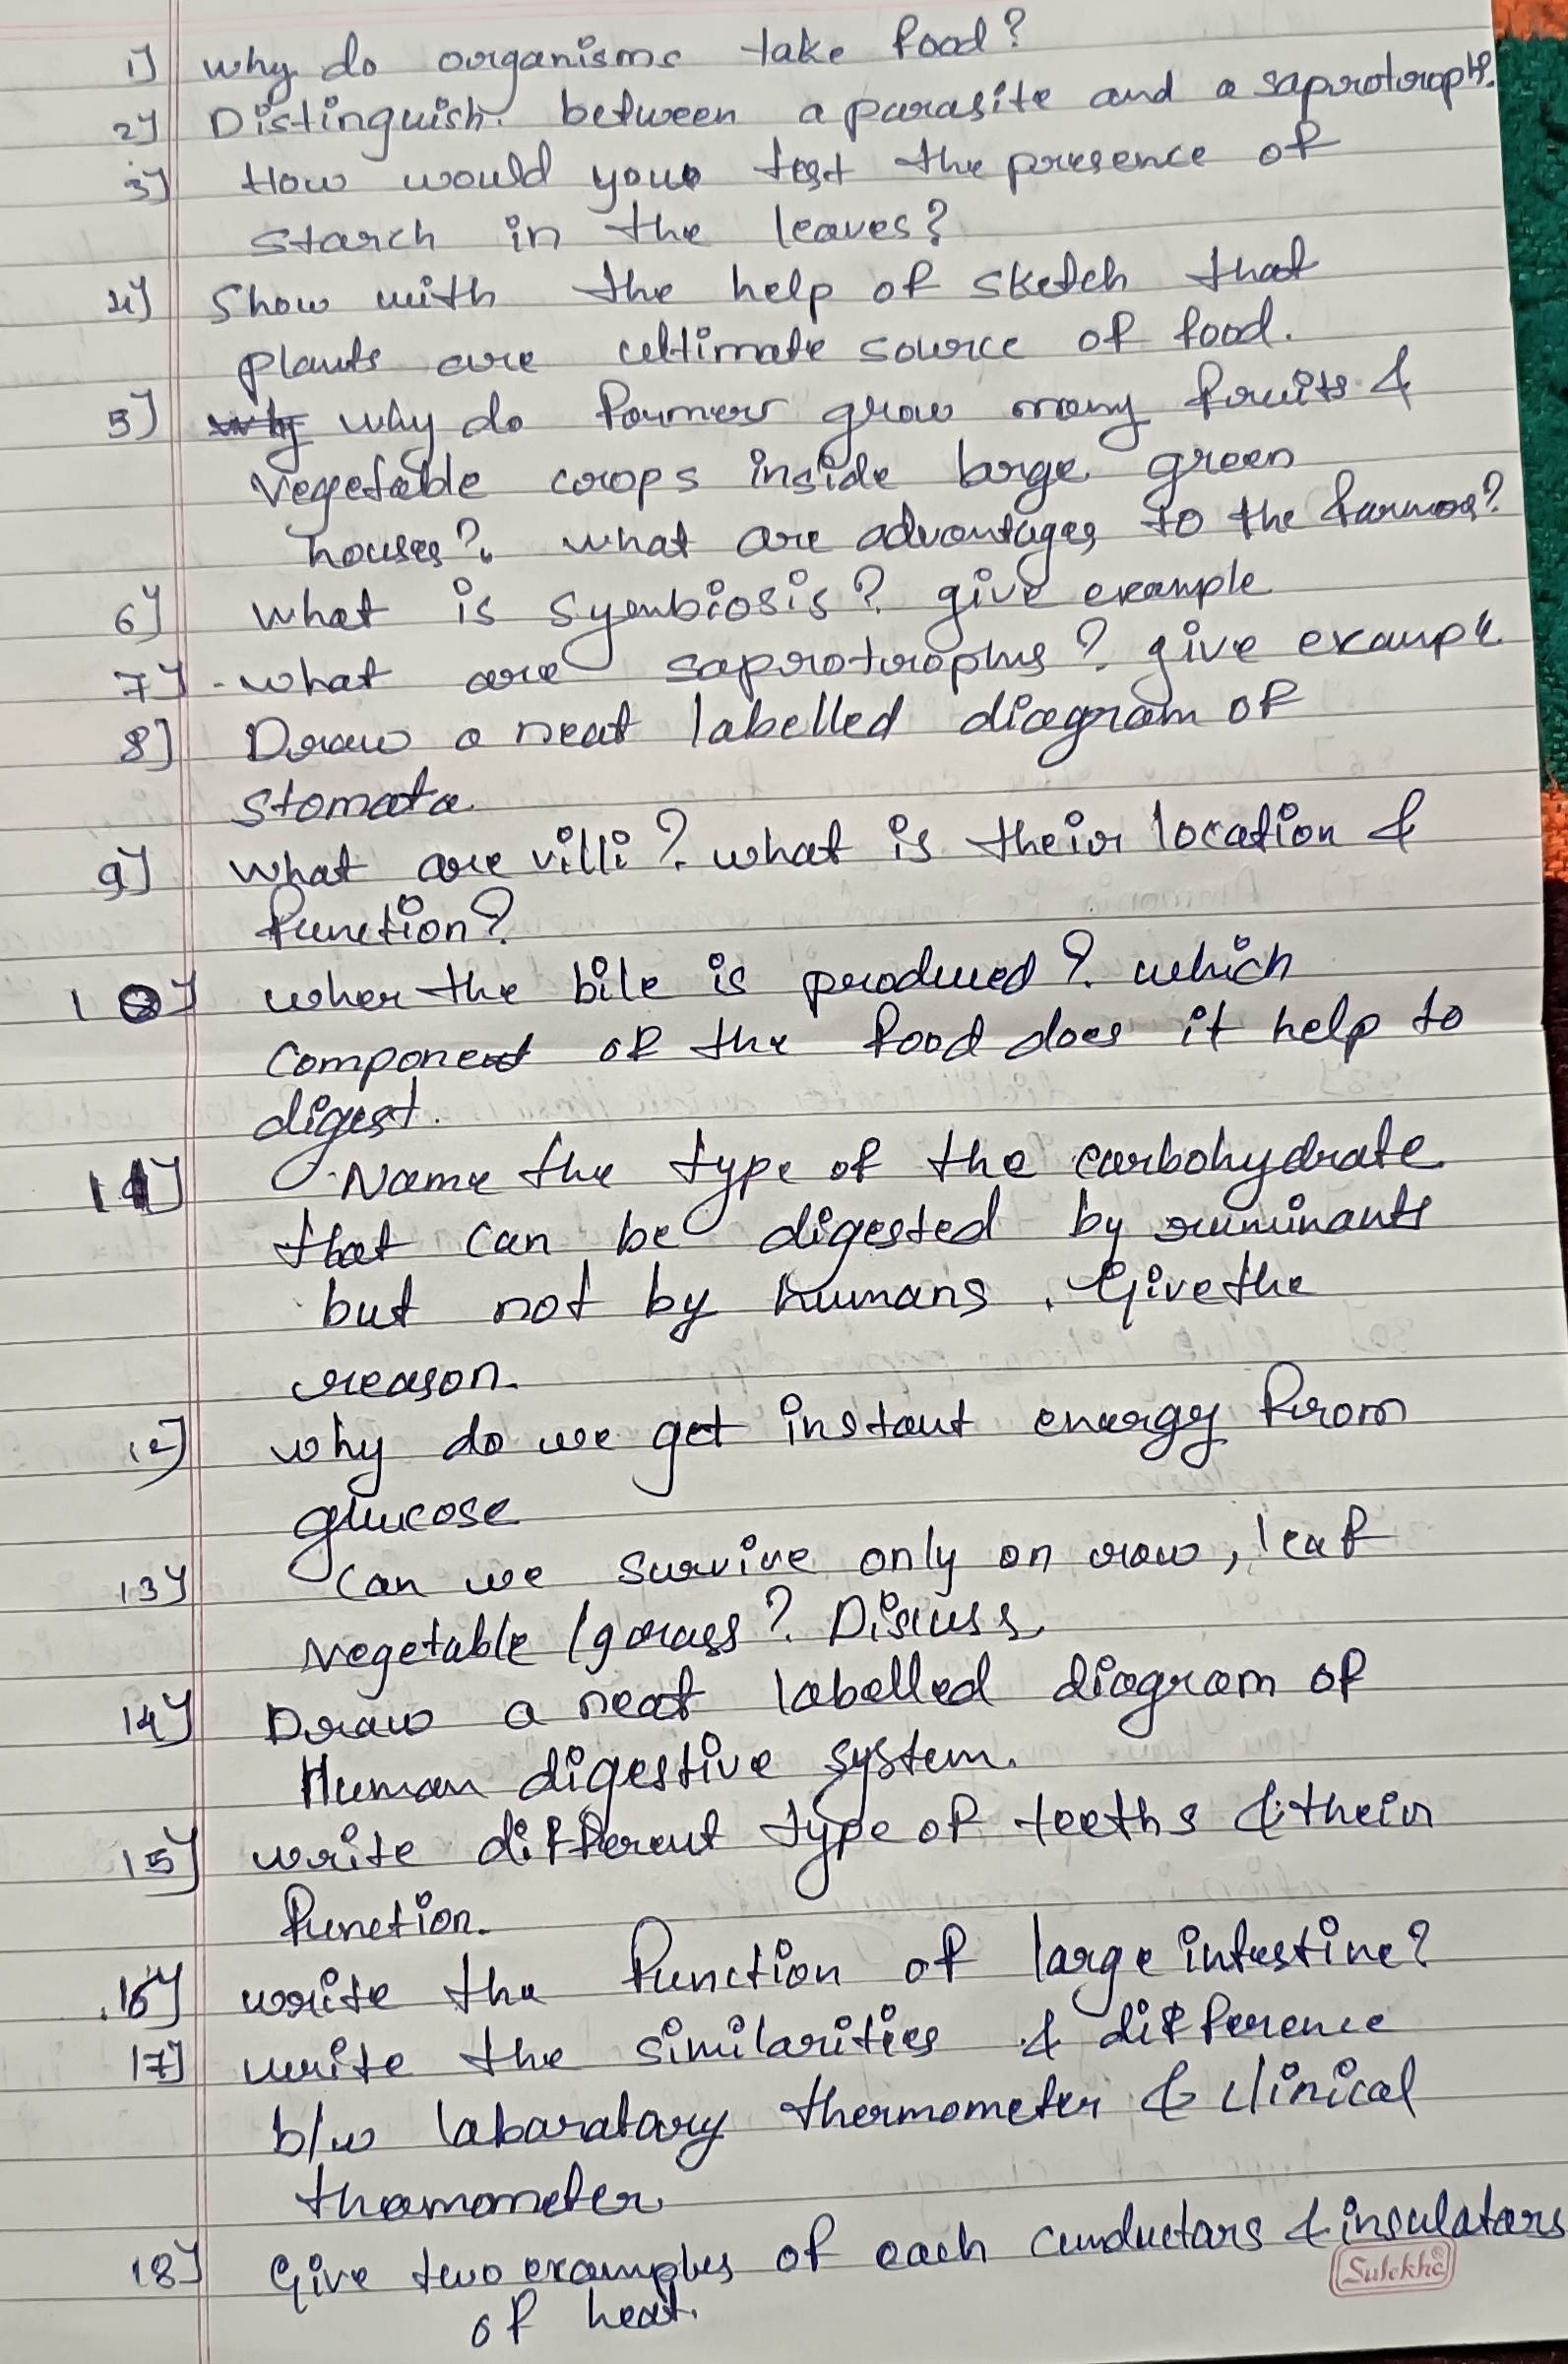 1) why do organisms take food?
2) Distinguish between a parasite and a saprotroph.
3) How would you test the presence of
starch in the leaves?
4) Show with the help of sketch that
plants are ultimate source of food.
5) why do farmers grow many fruits &
vegetable crops inside large green
houses? what are advantages to the farmer?
6) what is symbiosis? give example
7) what are saprotrophs? give example
8) Draw a neat labelled diagram of
stomata
9) what are villi? what is their location &
function?
10) wher the bile is produced? which
component of the food does it help to
digest.
11) Name the type of the carbohydrate
that can be digested by ruminants
but not by humans. Give the
reason.
12) why do we get instant energy from
glucose
13) Can we survive only on raw, leaf
vegetable / grass? Discuss
14) Draw a neat labelled diagram of
Human digestive system.
15) write different type of teeths & their
function.
16) write the function of large intestine?
17) write the similarities & difference
b/w labaratary thermometer & clinical
thermometer
18) Give two examples of each conductars & insulatars
of heat.
Sulekha